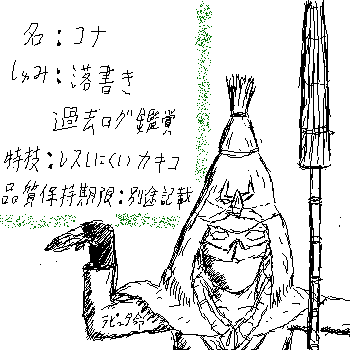 名:コナ
しゅみ:落書き
過去ログ鑑賞
特技:レスしにくいカキコ
品質保持期限:別途記載
ラピュタ命